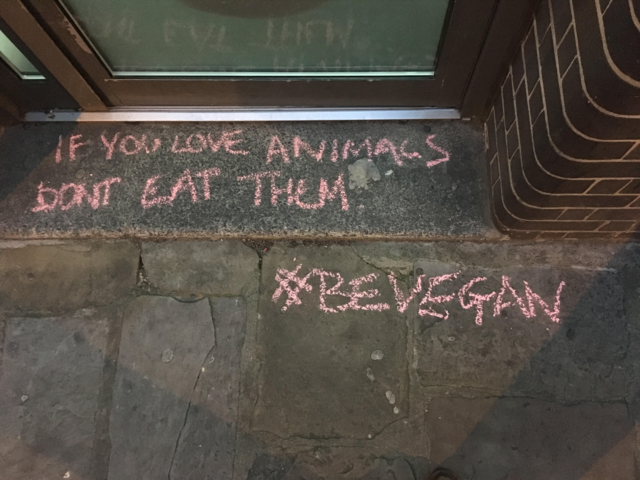 IF YOU LOVE ANIMALS
DONT EAT THEM
#BEVEGAN